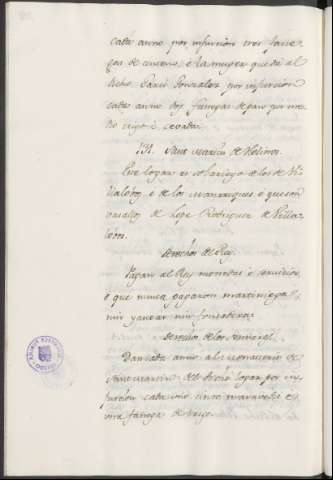 cada anno por infurcion tres fane-
gas de centeno, e la muger que dé al
dicho Garci Gonzalez por infurcion
cada anno dos fanegas de pan por me-
dio trigo é cevada.
131. Sant Martin de Molinos.
Este logar es solariego de los de Vi-
llalobos é de los Manrriques é que son
vasallos de Lope Rodriguez de Villa-
lobos.
Derechos del Rey.
Pagan al Rey monedas é servicios,
é que nunca pagaron martiniega,
nin yantar nin fonsadera.
Derechos de los Sennores.
Dan cada anno al monesterio de
Sant Martin del dicho logar por in-
furcion cada uno cinco maravedis é
una fanega de trigo.